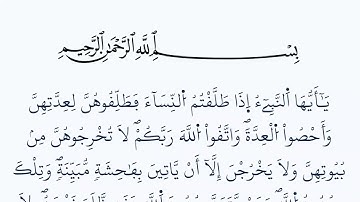 بِسْمِ ٱللَّهِ ٱلرَّحْمَٰنِ ٱلرَّحِيمِ
يَـٰٓأَيُّهَا اَ۬لنَّبِيٓءُ اِ۪ذَا طَلَّقْتُمُ اُ۬لنِّسَآءَ فَطَلِّقُوهُنَّ لِعِدَّتِهِنَّ
وَأَحْصُواْ اُ۬لْعِدَّةَۖ وَاتَّقُواْ اُ۬للَّهَ رَبَّكُمْۖ لَا تُخْرِجُوهُنَّ مِنۢ
بُيُوتِهِنَّ وَلَا يَخْرُجْنَ إِلَّآ أَنْ يَّاتِينَ بِفَٰحِشَةٖ مُّبَيِّنَةٖۖ وَتِلْكَ